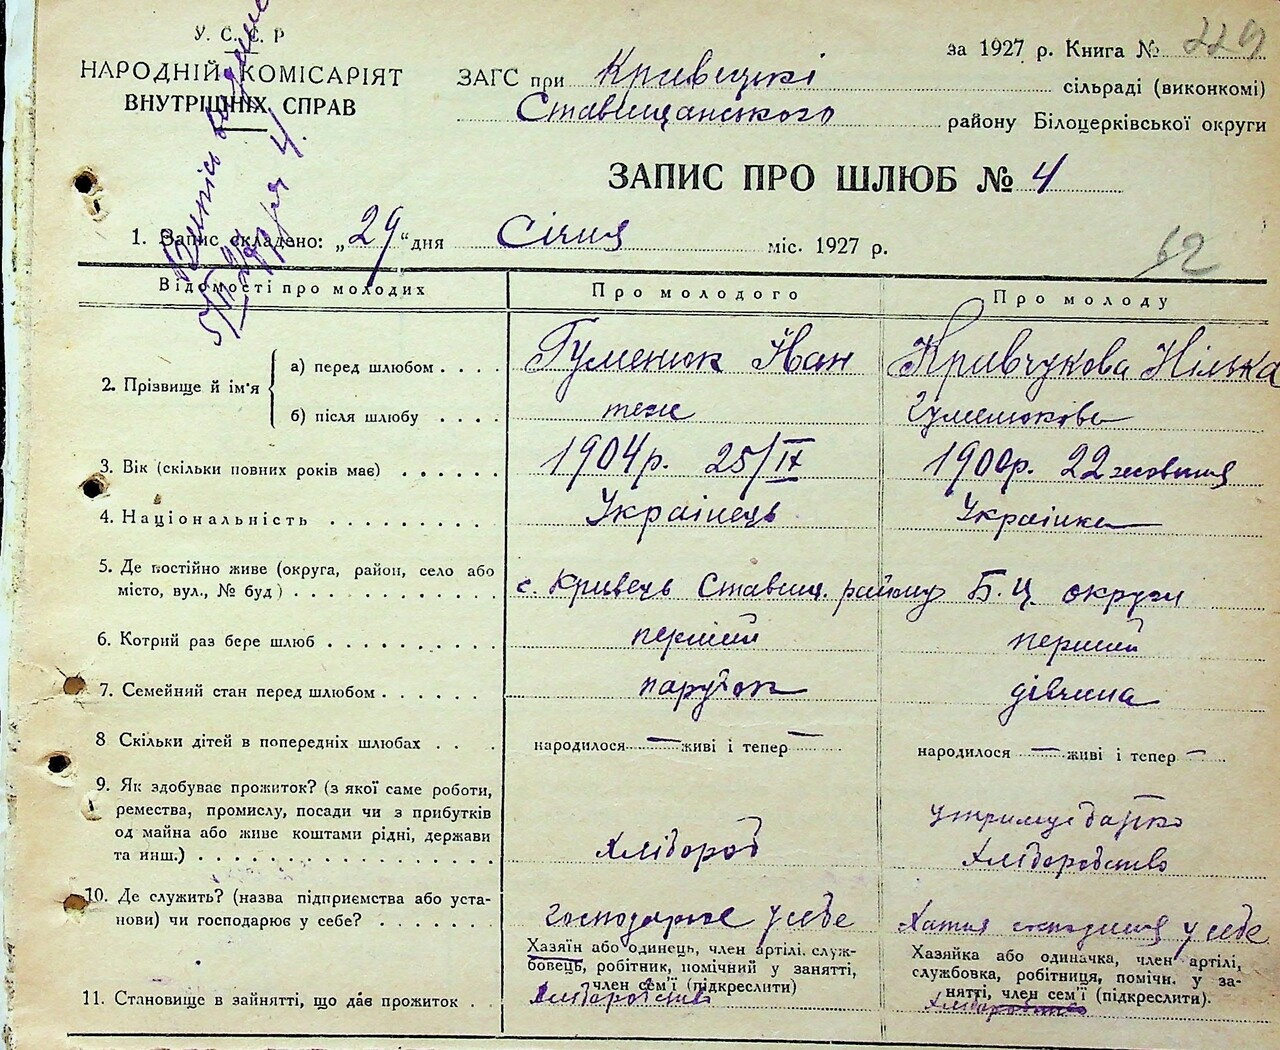 У. С. С. Р
НАРОДНІЙ КОМІСАРІЯТ
ВНУТРІШНІХ СПРАВ
за 1927 р. Книга № 229
ЗАГС при Кривецькі
сільраді (виконкомі)
Ставищанського району Білоцерківської округи
ЗАПИС ПРО ШЛЮБ № 4
1. Запис складено: „29“ дня Січня міс. 1927 р.
62
Відомості про молодих Про молодого Про молоду
2. Прізвище й ім'я
а) перед шлюбом . . . . Гуменюк Іван Кривчукова Нілька
б) після шлюбу . . . . теж Гуменюкова
3. Вік (скільки повних років має) . . . . . . 1904р. 25/IX 1900р. 22 жовтня
4. Національність . . . . . . . . . . Українець Українка
5. Де постійно живе (округа, район, село або
місто, вул., № буд) . . . . . . . . . . . . с. Кривець Ставищ. району Б.Ц. округи
6. Котрий раз бере шлюб . . . . . . . . . . перший перший
7. Семейний стан перед шлюбом . . . . . . парубок дівчина
8 Скільки дітей в попередніх шлюбах . . . народилося — живі і тепер — народилося — живі і тепер —
9. Як здобуває прожиток? (з якої саме роботи,
ремества, промислу, посади чи з прибутків
од майна або живе коштами рідні, держави
та инш.) . . . . . . . . . . . . . . . . . Хлібороб
утримує батько
Хліборобство
10. Де служить? (назва підприємства або уста-
нови) чи господарює у себе? . . . . . . . господарює у себе у себе
Хазяїн або одинець, член артілі, служ-
бовець, робітник, помічний у занятті,
член сем'ї (підкреслити)
Хазяйка або одиначка, член артілі,
службовка, робітниця, помічн. у за-
нятті, член сем'ї (підкреслити).
11. Становище в зайнятті, що дає прожиток . Хліборобство Хліборобство